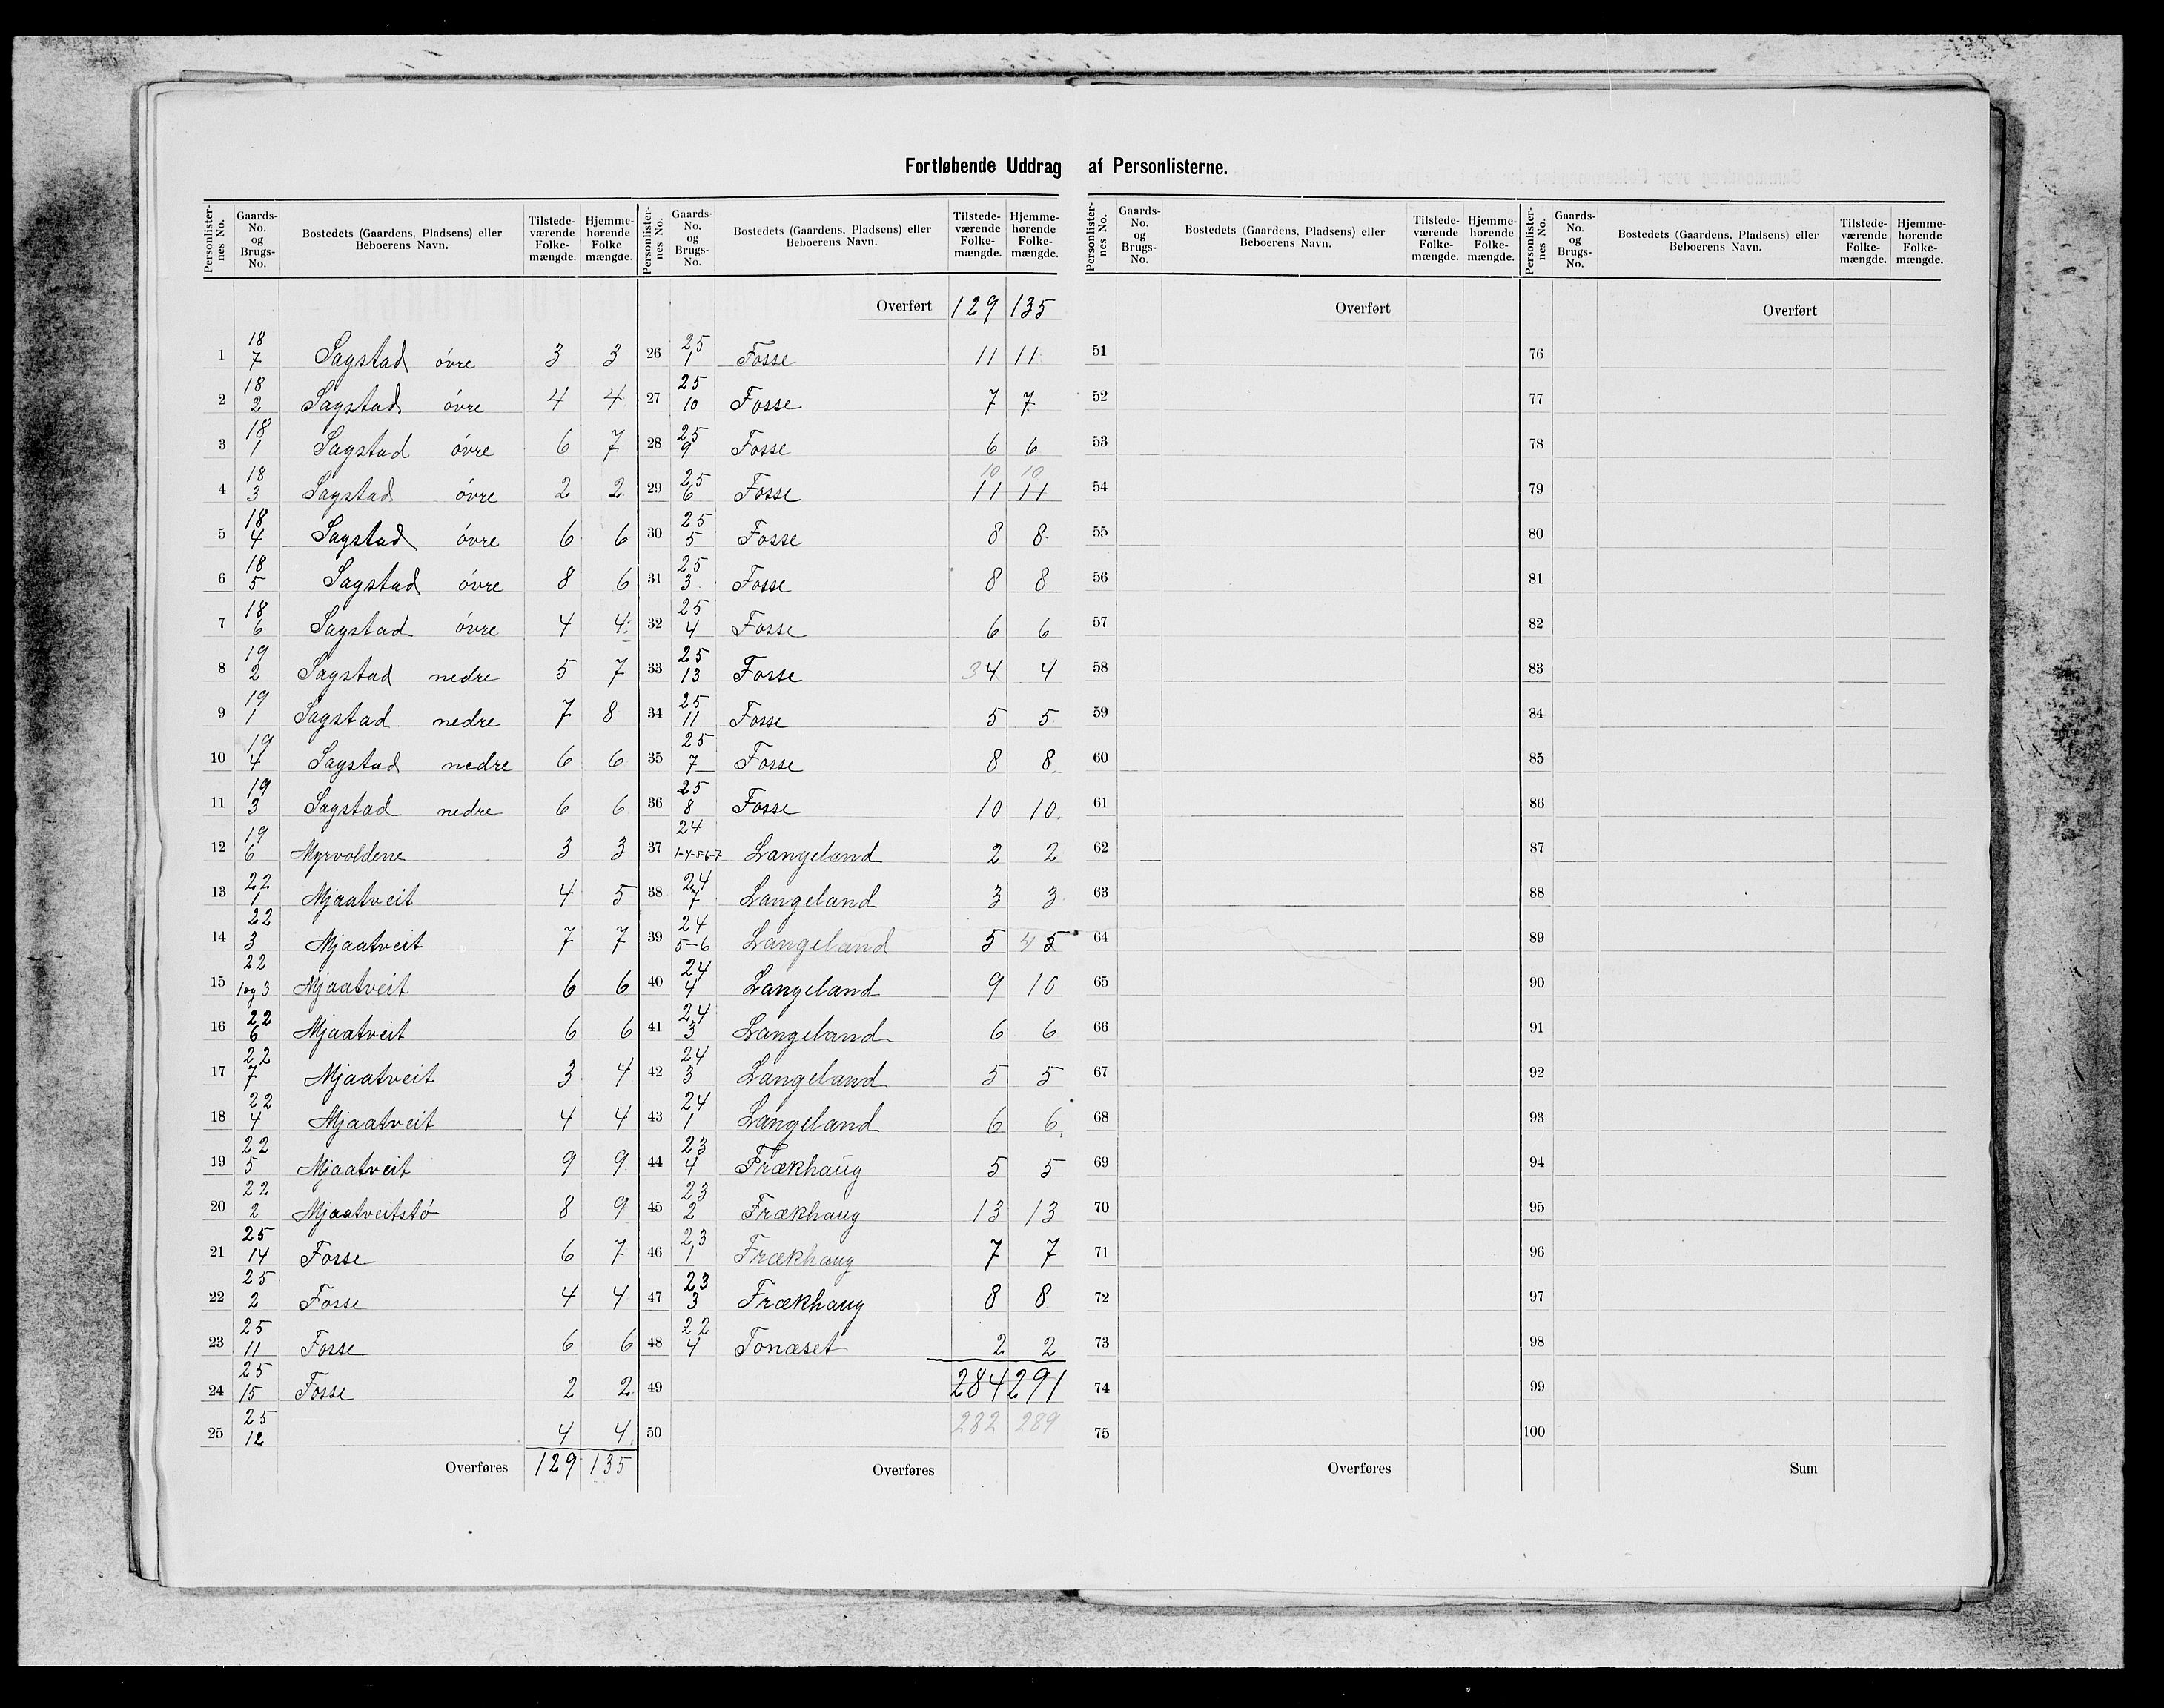 Fortløbende Uddrag af Personlisterne.
Personlister-nes No. | Gaards-No. og Brugs-No. | Bostedets (Gaardens, Pladsens) eller Beboerens Navn. | Tilstede-værende Folke-mængde. | Hjemme-hørende Folke mængde.
1 | 18 7 | Sagstad övre | 3 | 3
2 | 18 2 | Sagstad övre | 4 | 4
3 | 18 1 | Sagstad övre | 6 | 7
4 | 18 3 | Sagstad övre | 2 | 2
5 | 18 4 | Sagstad övre | 6 | 6
6 | 18 5 | Sagstad övre | 8 | 6
7 | 18 6 | Sagstad övre | 4 | 4
8 | 19 2 | Sagstad nedre | 5 | 7
9 | 19 1 | Sagstad nedre | 7 | 8
10 | 19 4 | Sagstad nedre | 6 | 6
11 | 19 3 | Sagstad nedre | 6 | 6
12 | 19 6 | Myrvoldene | 3 | 3
13 | 22 1 | Mjaatveit | 4 | 5
14 | 22 3 | Mjaatveit | 7 | 7
15 | 22 1 og 3 | Mjaatveit | 6 | 6
16 | 22 6 | Mjaatveit | 6 | 6
17 | 22 7 | Mjaatveit | 3 | 4
18 | 22 4 | Mjaatveit | 4 | 4
19 | 22 5 | Mjaatveit | 9 | 9
20 | 22 2 | Mjaatveitstö | 8 | 9
21 | 25 14 | Fosse | 6 | 7
22 | 25 2 | Fosse | 4 | 4
23 | 25 11 | Fosse | 6 | 6
24 | 25 15 | Fosse | 2 | 2
25 | 25 12 | | 4 | 4
Overføres | 129 | 135
Personlister-nes No. | Gaards-No. og Brugs-No. | Bostedets (Gaardens, Pladsens) eller Beboerens Navn. | Tilstede-værende Folke-mængde. | Hjemme-hørende Folke-mængde.
Overført | 129 | 135
26 | 25 1 | Fosse | 11 | 11
27 | 25 10 | Fosse | 7 | 7
28 | 25 9 | Fosse | 6 | 6
29 | 25 6 | Fosse | 10 11 | 10 11
30 | 25 5 | Fosse | 8 | 8
31 | 25 3 | Fosse | 8 | 8
32 | 25 4 | Fosse | 6 | 6
33 | 25 13 | Fosse | 3 4 | 4
34 | 25 11 | Fosse | 5 | 5
35 | 25 7 | Fosse | 8 | 8
36 | 25 8 | Fosse | 10 | 10
37 | 24 1-4-5-6-7 | Langeland | 2 | 2
38 | 24 7 | Langeland | 3 | 3
39 | 24 5-6 | Langeland | 5 | 4 5
40 | 24 4 | Langeland | 9 | 10
41 | 24 3 | Langeland | 6 | 6
42 | 24 3 | Langeland | 5 | 5
43 | 24 1 | Langeland | 6 | 6
44 | 23 4 | Frækhaug | 5 | 5
45 | 23 2 | Frækhaug | 13 | 13
46 | 23 1 | Frækhaug | 7 | 7
47 | 23 3 | Frækhaug | 8 | 8
48 | 22 4 | Tonæset | 2 | 2
49 | | | 284 | 291
50 | | | 282 | 289
Overføres
Personlister-nes No. | Gaards-No. og Brugs-No. | Bostedets (Gaardens, Pladsens) eller Beboerens Navn. | Tilstede-værende Folke-mængde. | Hjemme-hørende Folke-mængde.
Overført
51
52
53
54
55
56
57
58
59
60
61
62
63
64
65
66
67
68
69
70
71
72
73
74
75
Overføres
Personlister-nes No. | Gaards-No. og Brugs-No. | Bostedets (Gaardens, Pladsens) eller Beboerens Navn. | Tilstede-værende Folke-mængde. | Hjemme-hørende Folke-mængde.
Overført
76
77
78
79
80
81
82
83
84
85
86
87
88
89
90
91
92
93
94
95
96
97
98
99
100
Sum